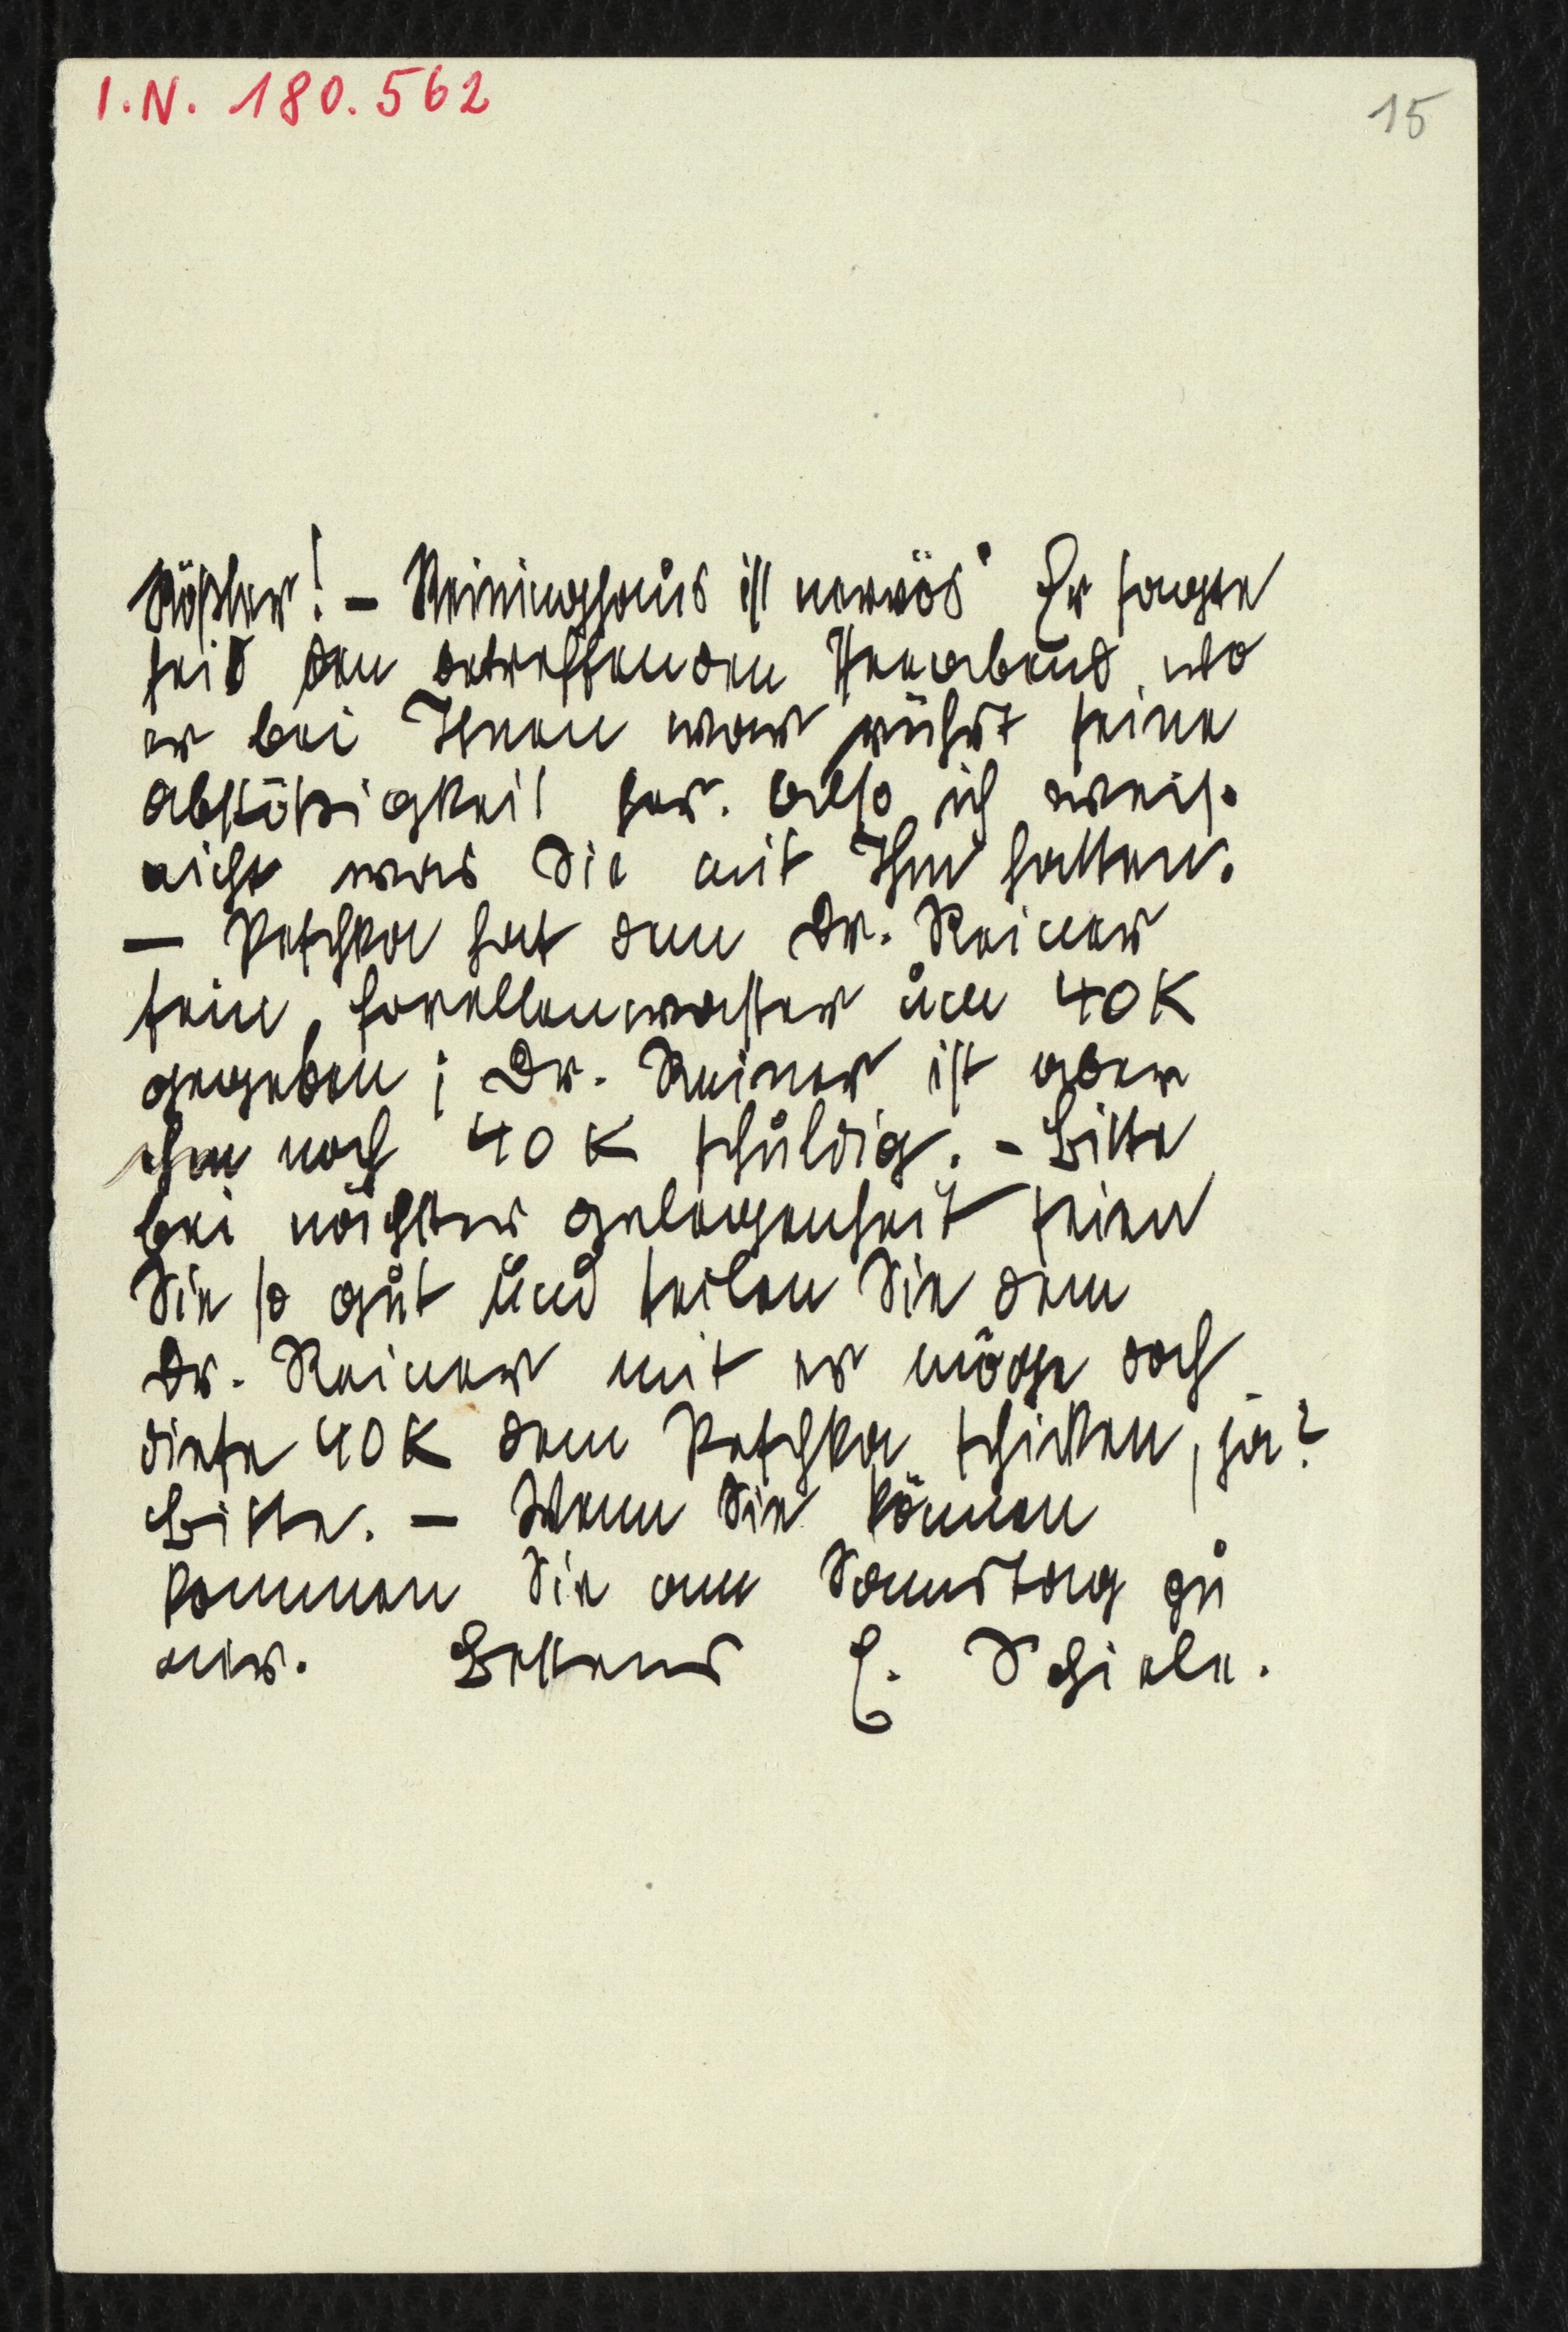 I.N. 180.562
15
Rößler! – Reininghaus ist nervös Er sagte
seid den betreffenden Theeabend, wo
er bei Ihnen war rührt seine
abstößigkeit her. also ich weis.
nicht was Sie mit Ihm hatten.
– Peschka hat dem Dr. Reiner
sein, forellenwasser um 40 K
gegeben; Dr. Reiner ist aber
ihm noch 40 K schuldig. – Bitte
bei nächster gelegenheit seien
Sie so gut und teilen Sie dem
Dr. Reiner mit er möge doch
diese 40 K dem Peschka schicken, ja?
Bitte. – Wenn Sie können
kommen Sie am Samstag zu
mir. Bestens E. Schiele.